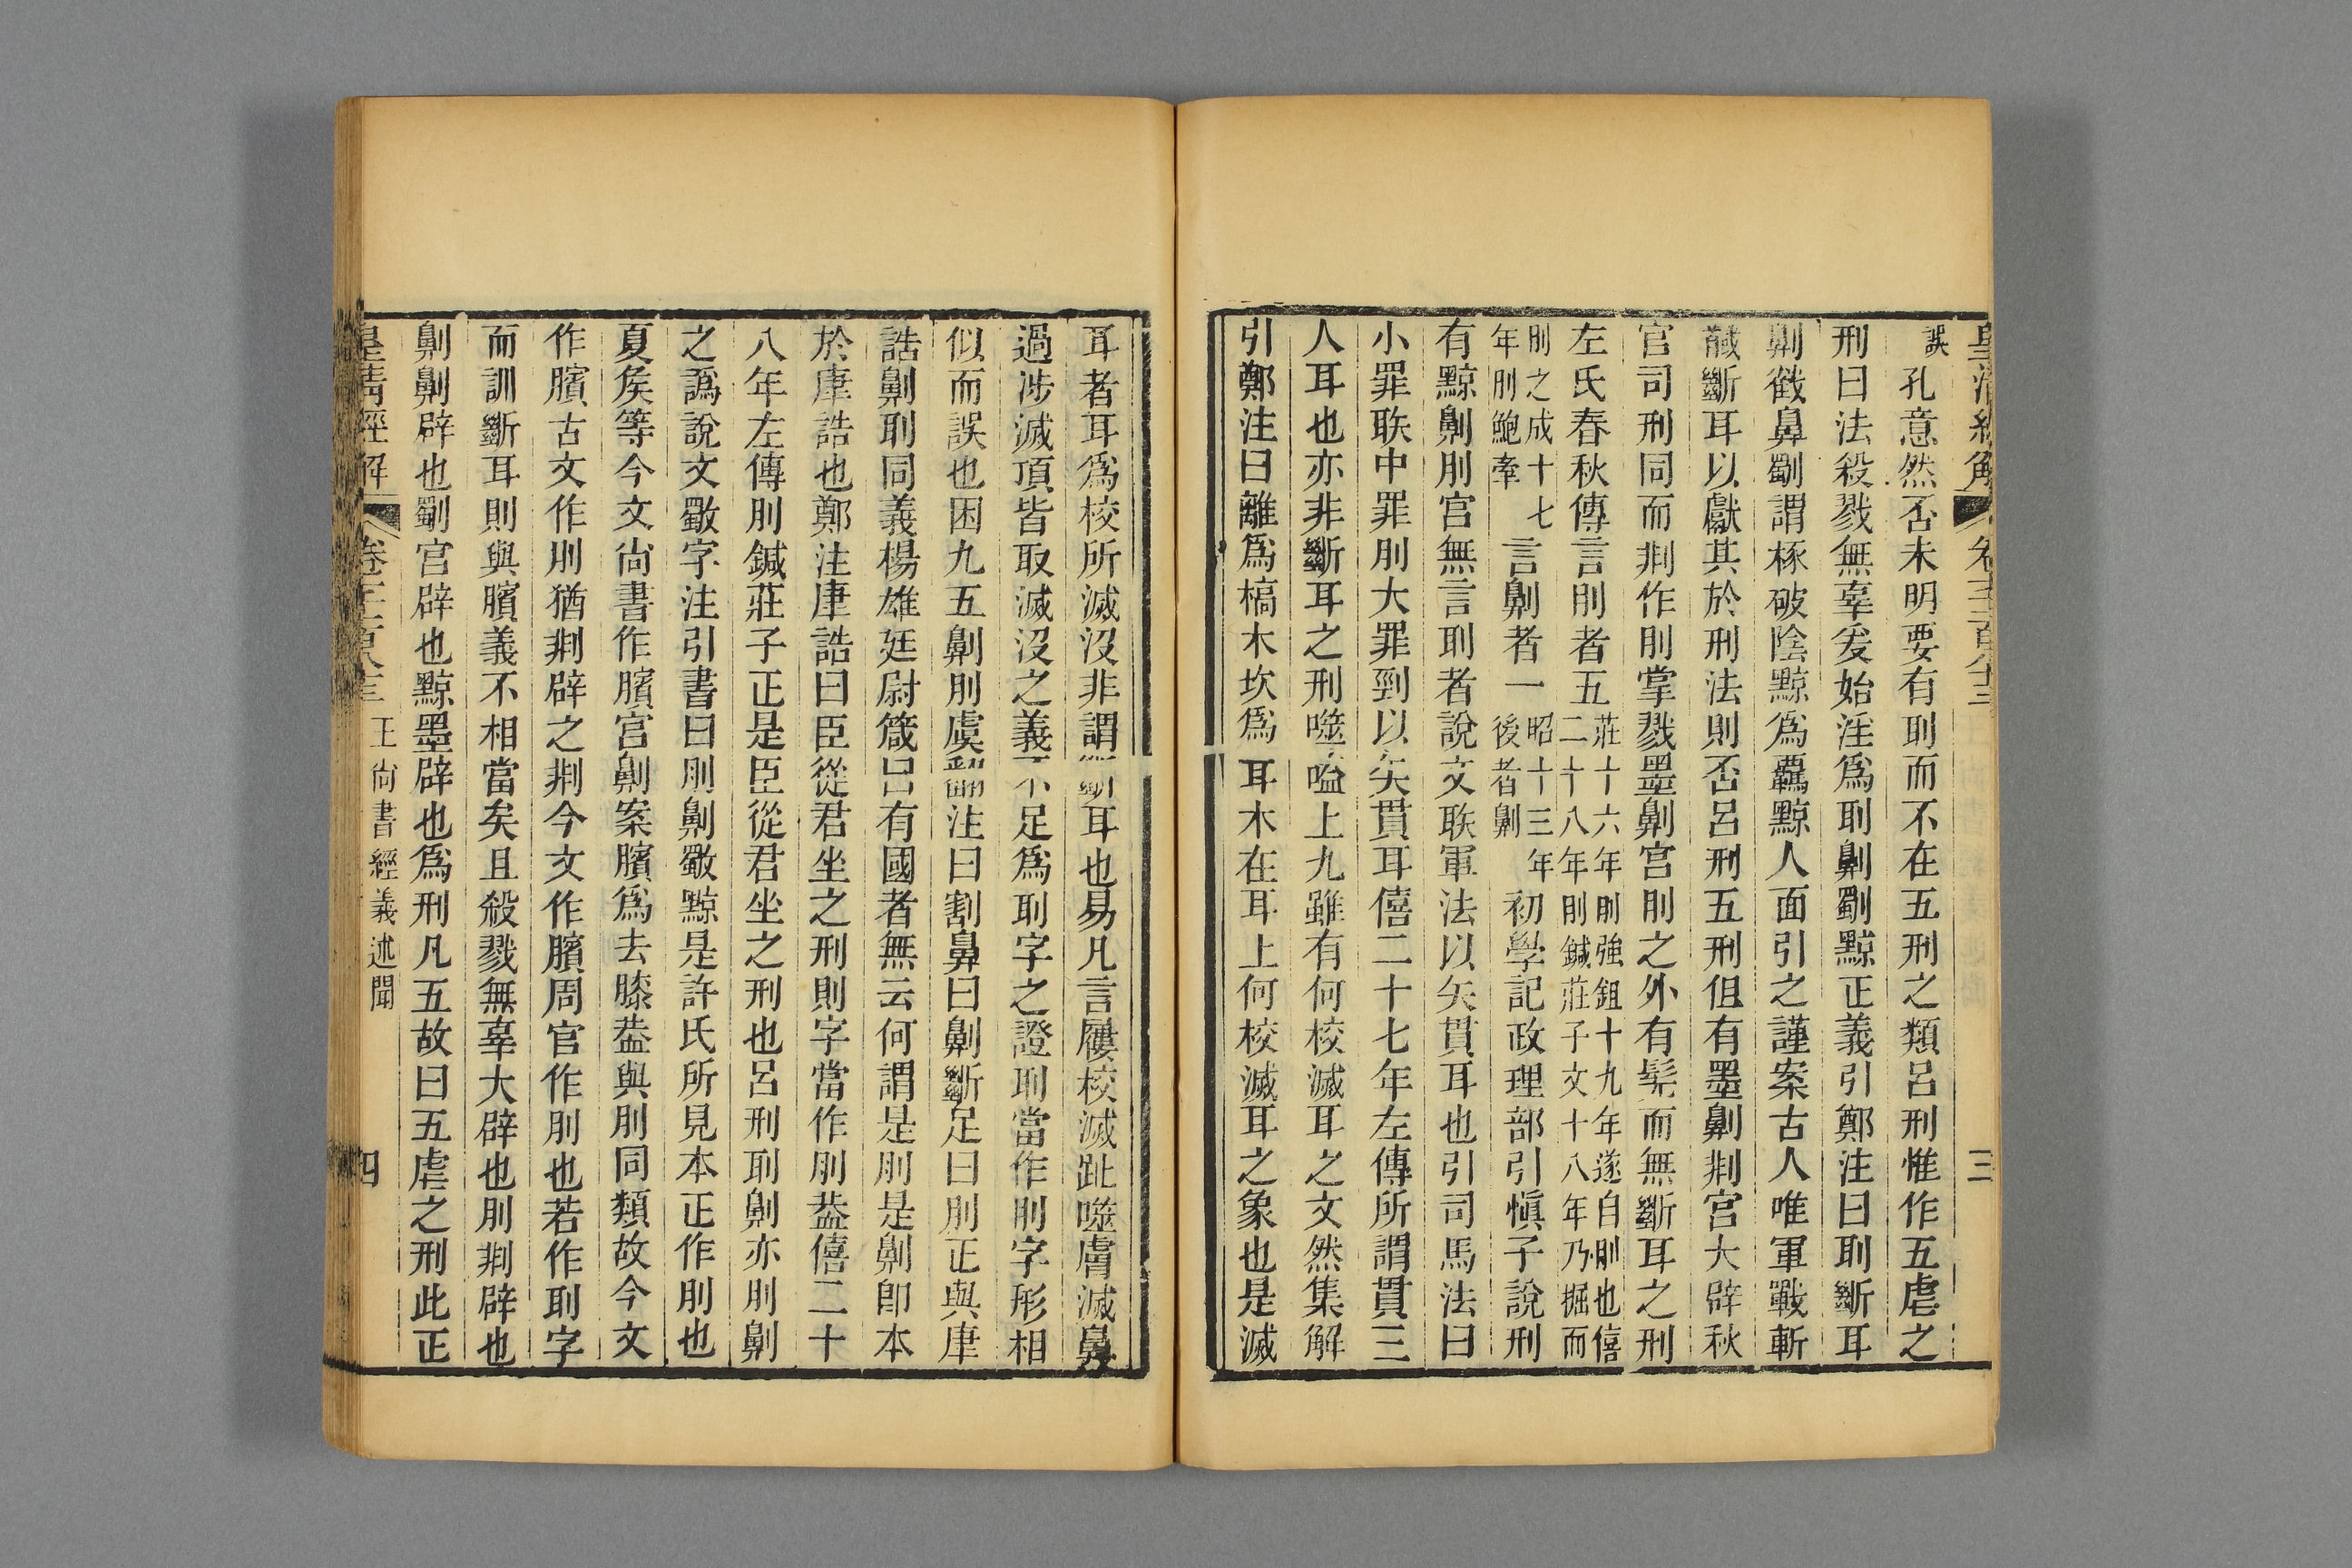 皇清經解
三
誤孔意然否未明要有刵而不在五刑之類呂刑惟作五虐之
刑曰法殺戮無辜爰始淫爲刵劓劅黥正義引鄭注曰刵斷耳
劓截鼻劅謂椓破陰黥爲羈黥人面引之謹案古人唯軍戰斬
馘斷耳以獻其於刑法則否呂刑五刑但有墨劓剕宮大辟秋
官司刑同而剕作刖掌戮墨劓宮刖之外有髡而無斷耳之刑
左氏春秋傳言刖者五莊十六年刖強鉏十九年遂自刖也僖
二十八年刖鍼莊子文十八年乃掘而
刖之成十七
年刖鮑牽言劓者一昭十三年
後者劓初學記政理部引愼子說刑
有黥劓刖宮無言刵者說文聅軍法以矢貫耳也引司馬法曰
小罪聅中罪刖大罪剄以矢貫耳僖二十七年左傳所謂貫三
人耳也亦非斷耳之刑噬嗑上九雖有何校滅耳之文然集解
引鄭注曰離爲槁木坎爲耳木在耳上何校滅耳之象也是滅
耳者耳爲校所滅沒非謂斷耳也易凡言屨校滅趾噬膚滅鼻
過涉滅頂皆取滅沒之義不足爲刵字之證刵當作刖字形相
似而誤也困九五劓刖虞翻注曰割鼻曰劓斷足曰刖正與康
誥劓刵同義楊雄廷尉箴曰有國者無云何謂是刖是劓卽本
於康誥也鄭注康誥曰臣從君坐之刑則字當作刖葢僖二十
八年左傳刖鍼莊子正是臣從君坐之刑也呂刑刵劓亦刖劓
之譌說文斀字注引書曰刖劓斀黥是許氏所見本正作刖也
夏矦等今文尙書作臏宮劓案臏爲去膝葢與刖同類故今文
作臏古文作刖猶剕辟之剕今文作臏周官作刖也若作刵字
而訓斷耳則與臏義不相當矣且殺戮無辜大辟也刖剕辟也
劓劓辟也劅宮辟也黥墨辟也爲刑凡五故曰五虐之刑此正
皇清經解
王尙書經義述聞
四